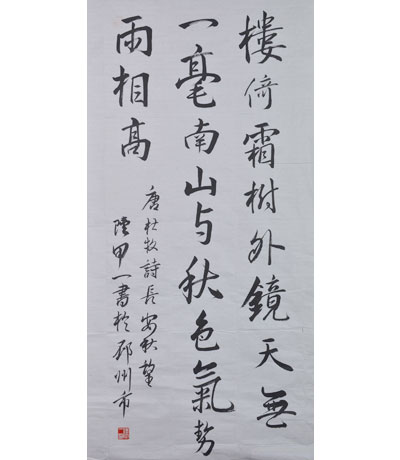 樓倚霜樹外鏡天無
一毫南山与秋色氣勢
兩相高
唐杜牧詩長安秋望
陸甲一書於邳州市